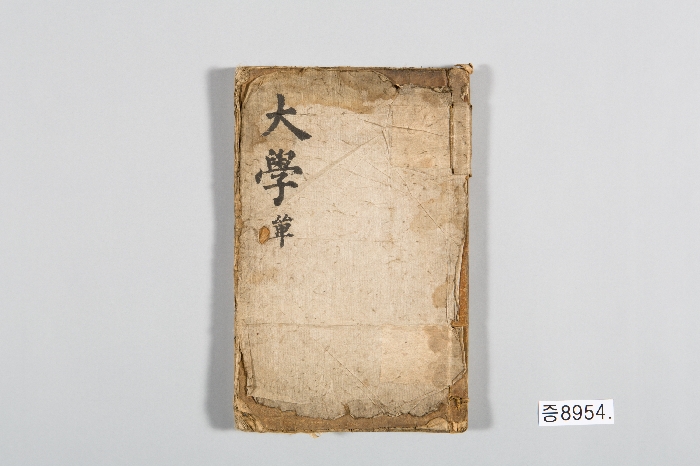 大學 單
증8954.